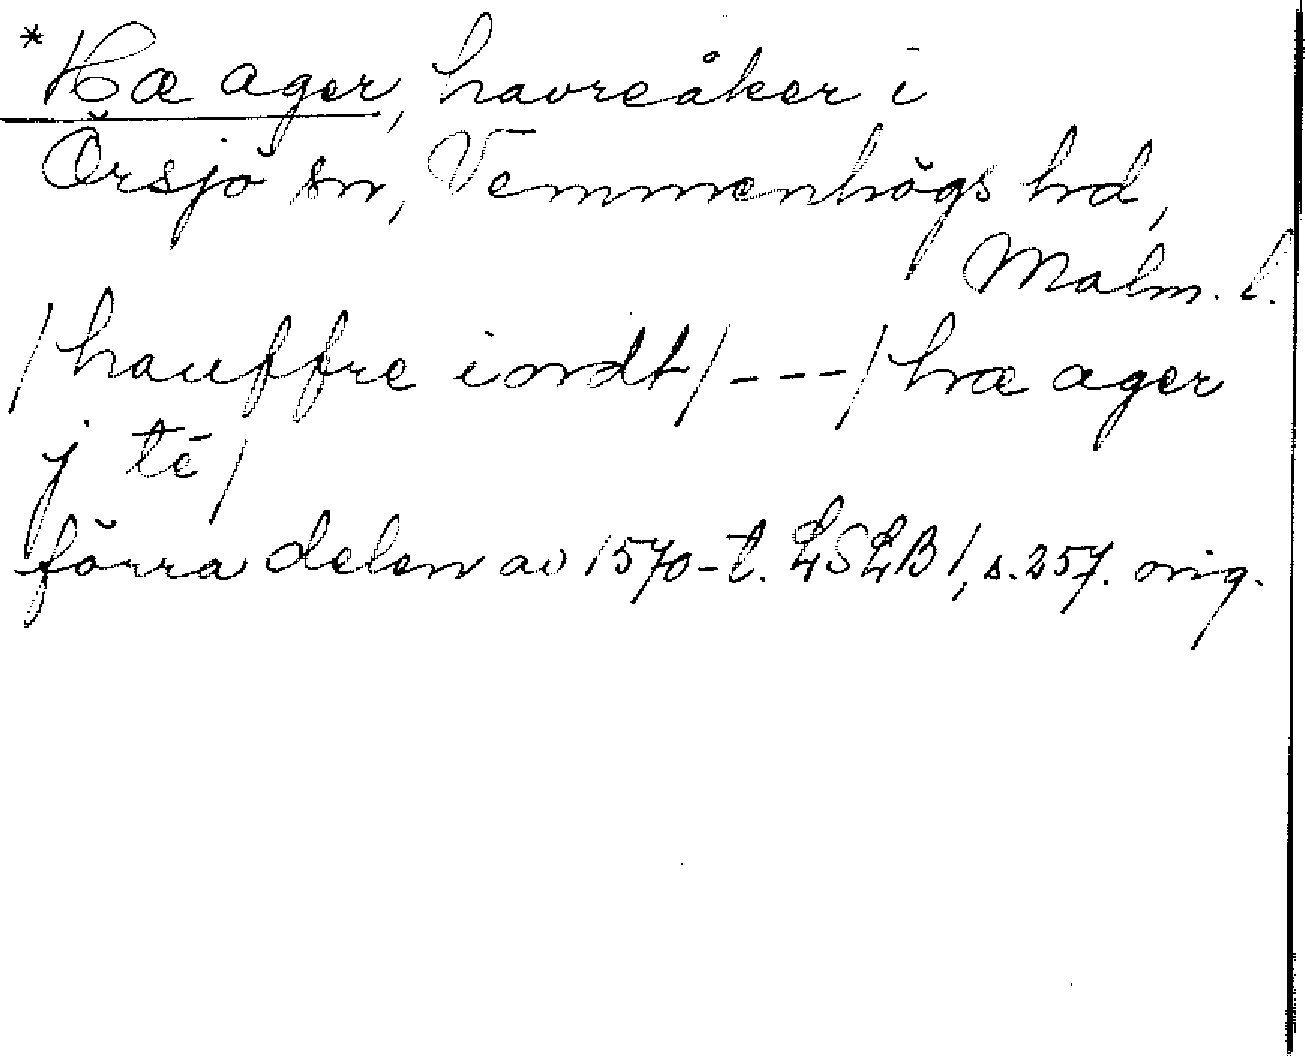 *Hæ ager, havreåker i
Örsjö sn, Vemmenhögs hd,
Malm. l.
/hauffre iordt/---/hæ ager
j tē/
förra delen av 1570-t. LSLB 1, s. 257. orig.